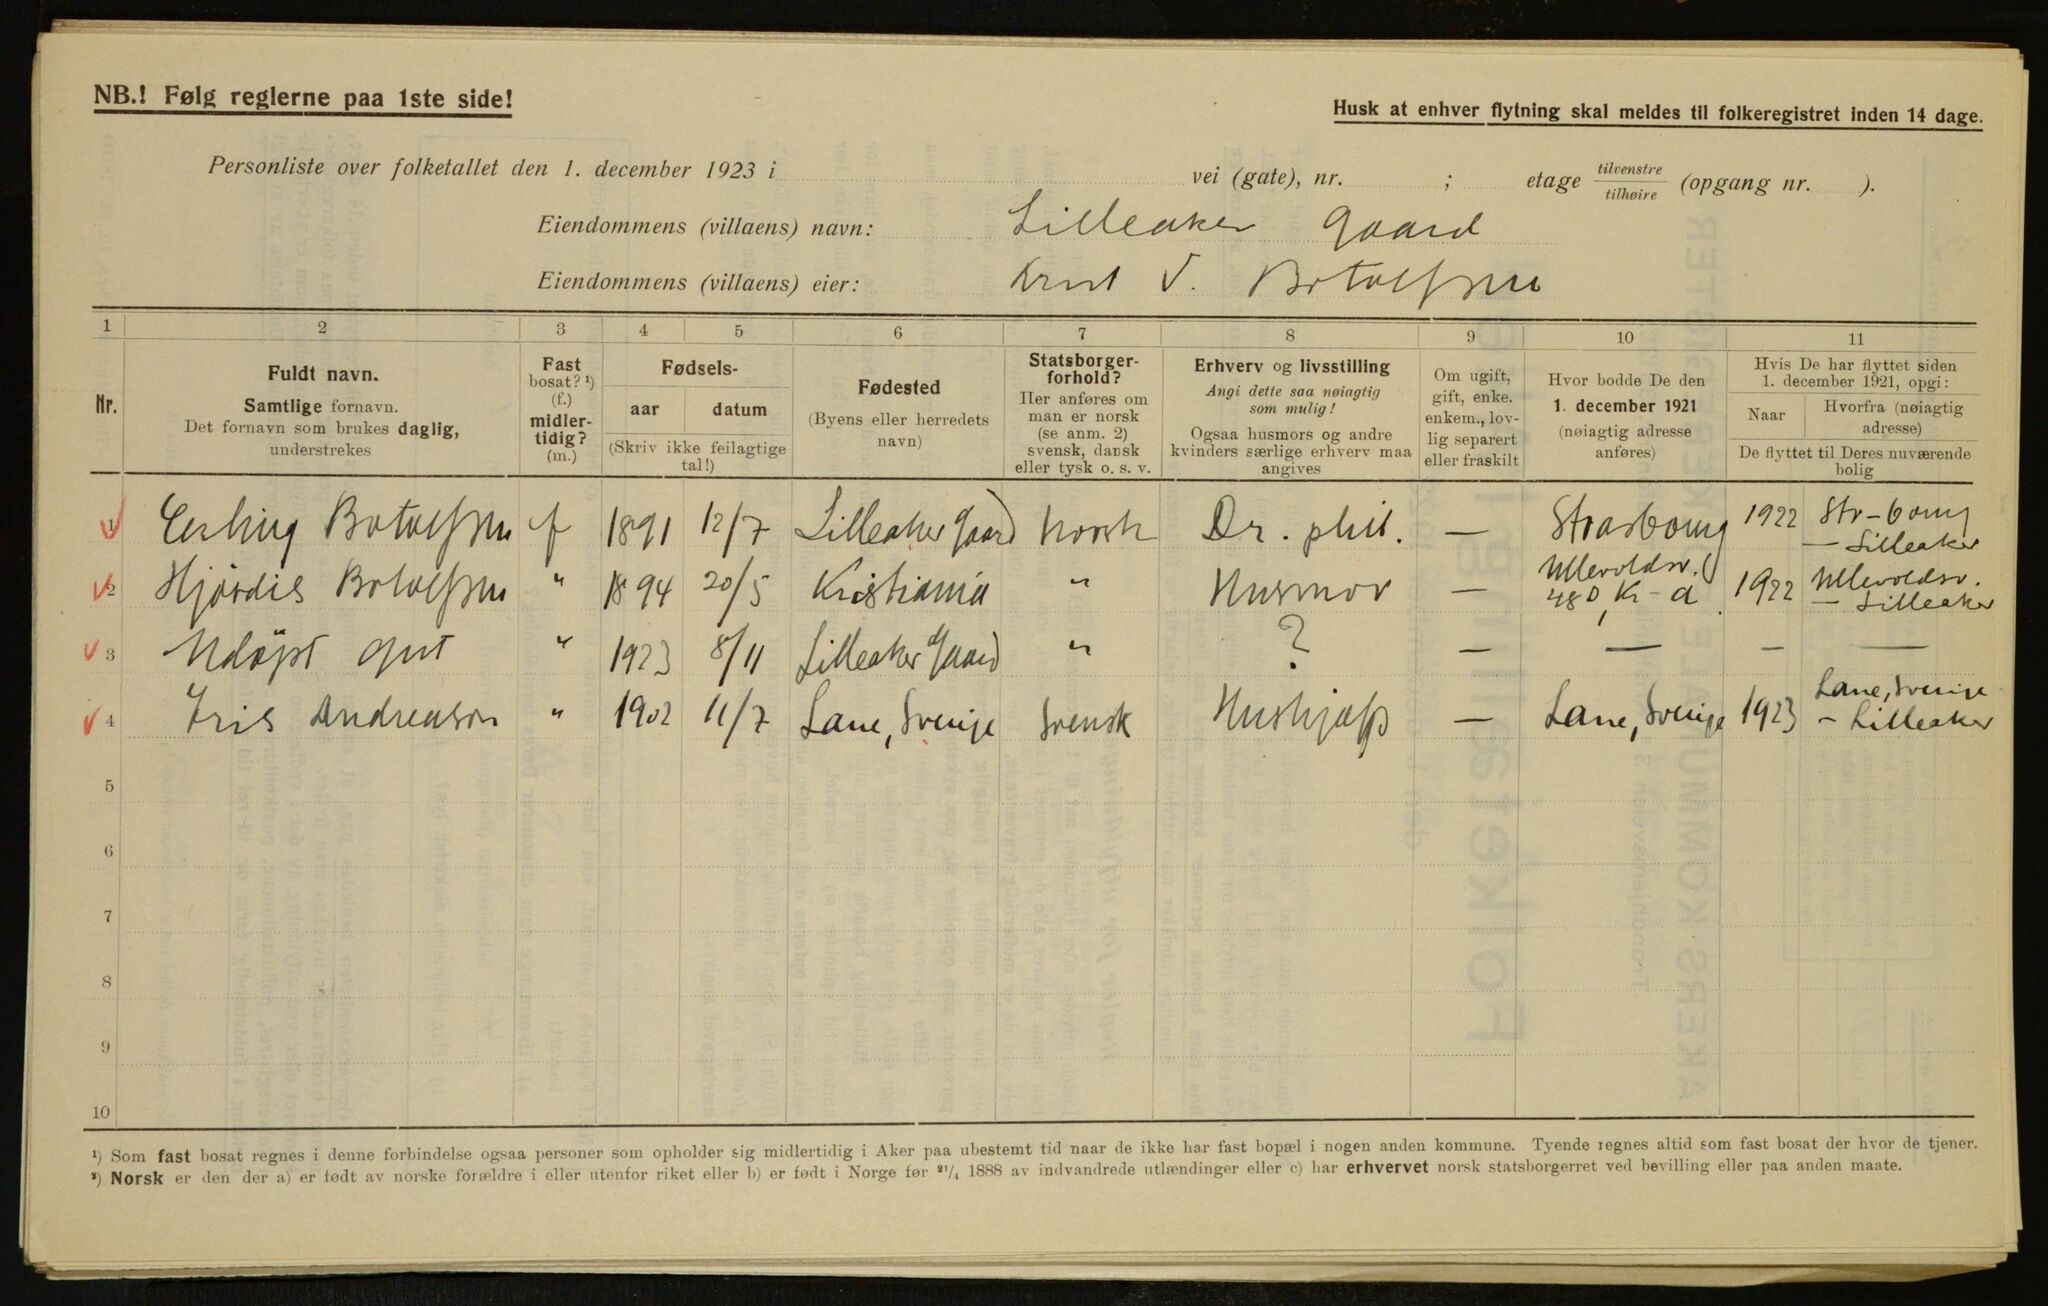 NB.! Følg reglerne paa 1ste side!
Husk at enhver flytning skal meldes til folkeregistret inden 14 dage.
Personliste over folketallet den 1. december 1923 i vei (gate), nr. ; etage tilvenstre tilhøire (opgang nr. ).
Eiendommens (villaens) navn: Lilleaker Gaard
Eiendommens (villaens) eier: V. Botolfsen
1 2 3 4 5 6 7 8 9 10 11
Nr.
Fuldt navn.
Samtlige fornavn.
Det fornavn som brukes daglig,
understrekes
Fast
bosat? ¹)
(f.)
midler-
tidig?
(m.)
Fødsels-
aar datum
(Skriv ikke feilagtige
tal!)
Fødested
(Byens eller herredets
navn)
Statsborger-
forhold?
Her anføres om
man er norsk
(se anm. 2)
svensk, dansk
eller tysk o. s. v.
Erhverv og livsstilling
Angi dette saa nøiagtig
som mulig!
Ogsaa husmors og andre
kvinders særlige erhverv maa
angives
Om ugift,
gift, enke.
enkem., lov-
lig separert
eller fraskilt
Hvor bodde De den
1. december 1921
(nøiagtig adresse
anføres)
Hvis De har flyttet siden
1. december 1921, opgi:
Naar Hvorfra (nøiagtig
adresse)
De flyttet til Deres nuværende
bolig
1 Erling Botolfsen f 1891 12/7 Lilleaker Gaard Norsk Dr. phil. — Strasbourg 1922 Str-bourg
— Lilleaker
2 Hjørdis Botolfsen " 1894 20/5 Kristiania " Husmor — Ullevoldsv. 48 D, Kr-a 1922 Ullevoldsv.
— Lilleaker
3 Udøpt gut " 1923 8/11 Lilleaker Gaard " ? — — — —
4 Iris Andreason " 1902 11/7 Lane, Sverige Svensk Hushjælp — Lane, Sverige 1923 Lane, Sverige
— Lilleaker
5
6
7
8
9
10
¹) Som fast bosat regnes i denne forbindelse ogsaa personer som opholder sig midlertidig i Aker paa ubestemt tid naar de ikke har fast bopæl i nogen anden kommune. Tyende regnes altid som fast bosat der hvor de tjener.
²) Norsk er den der a) er født av norske forældre i eller utenfor riket eller b) er født i Norge før ²¹/₄ 1888 av indvandrede utlændinger eller c) har erhvervet norsk statsborgerret ved bevilling eller paa anden maate.